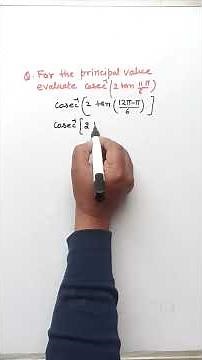 Q. For the principal value
evaluate cosec⁻¹(2 tan 11π/6)
cosec⁻¹[2 tan(12π-π/6)]
cosec⁻¹[2